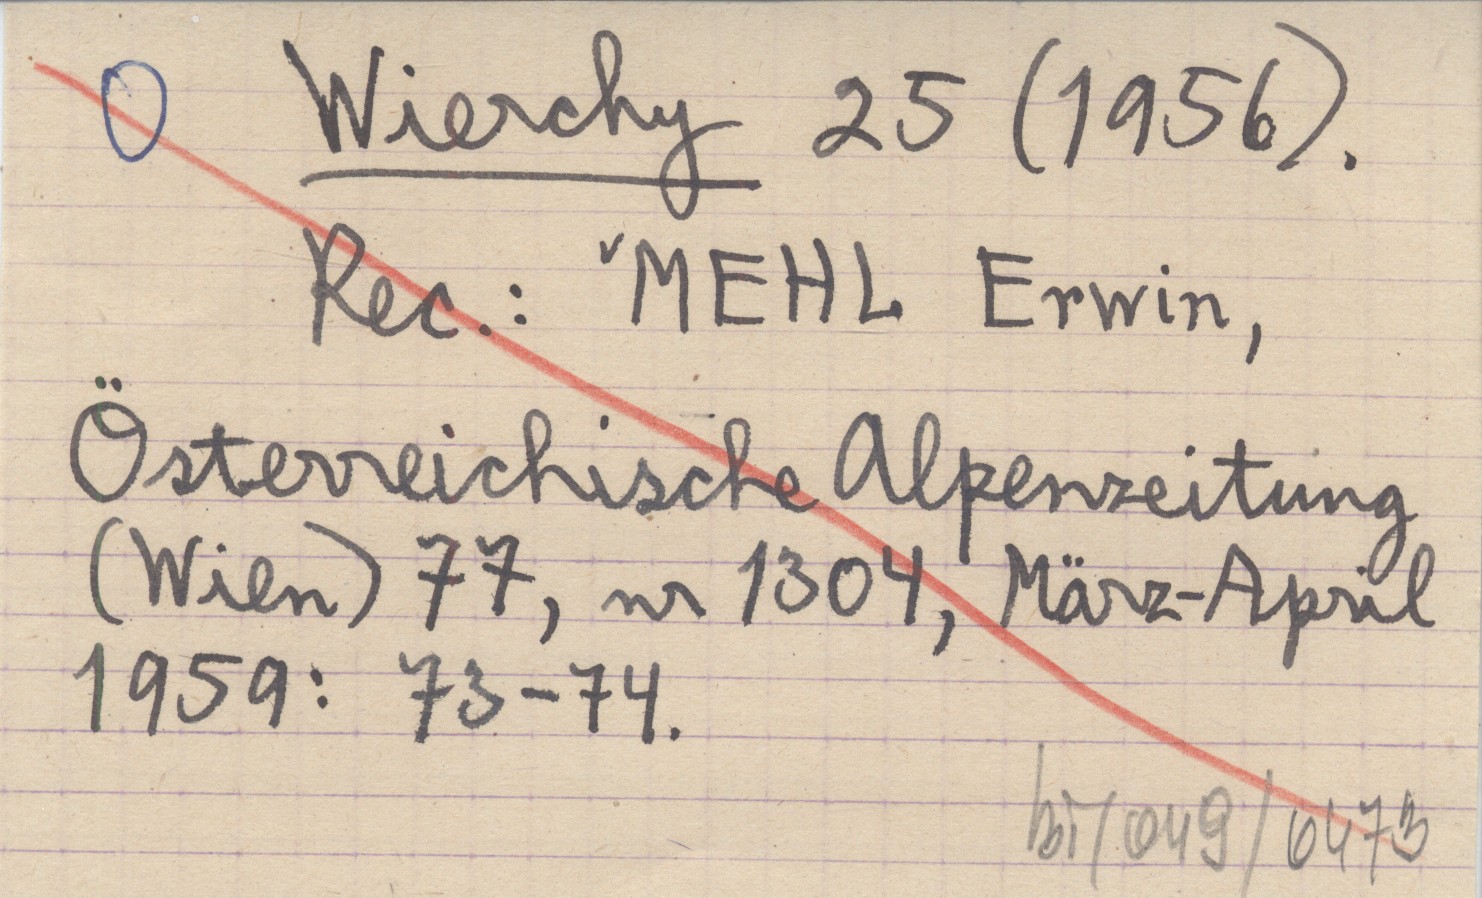 0 Wierchy 25 (1956).
Rec.: ˇMEHL Erwin,
Österreichische Alpenzeitung
(Wien) 77, nr 1304, März-April
1959: 73-74.
bi/049/0473